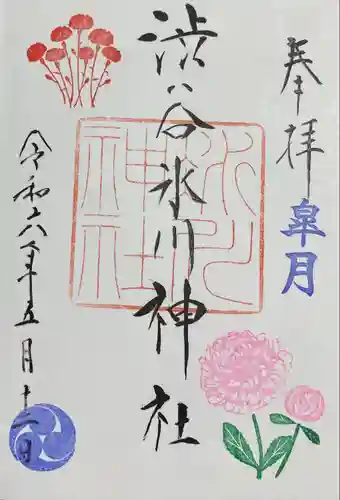 奉拝
皐月
渋谷氷川神社
氷川
神社
令和六年五月十二日